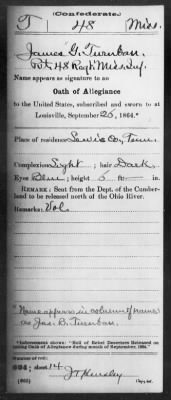 (Confederate.)
T 48 Miss.
James G. Turnbau.
Pvt 48 Reg't Miss. Inf.
Name appears as signature to an
Oath of Allegiance
to the United States, subscribed and sworn to at
Louisville, September 26, 1864.*
Place of residence Lewis Co, Tenn.
Complexion Light; hair Dark
Eyes Blue; height 5 ft — in.
REMARK: Sent from the Dept. of the Cumberland to be released north of the Ohio River.
Remarks: Vol.
Name appears in column of names
as Jas. G. Turnbau.
*Indorsement shows: "Roll of Rebel Deserters Released on
taking Oath of Allegiance during month of September, 1864."
Number of roll:
604; sheet 14
J T Hensley
(660) Copyist.